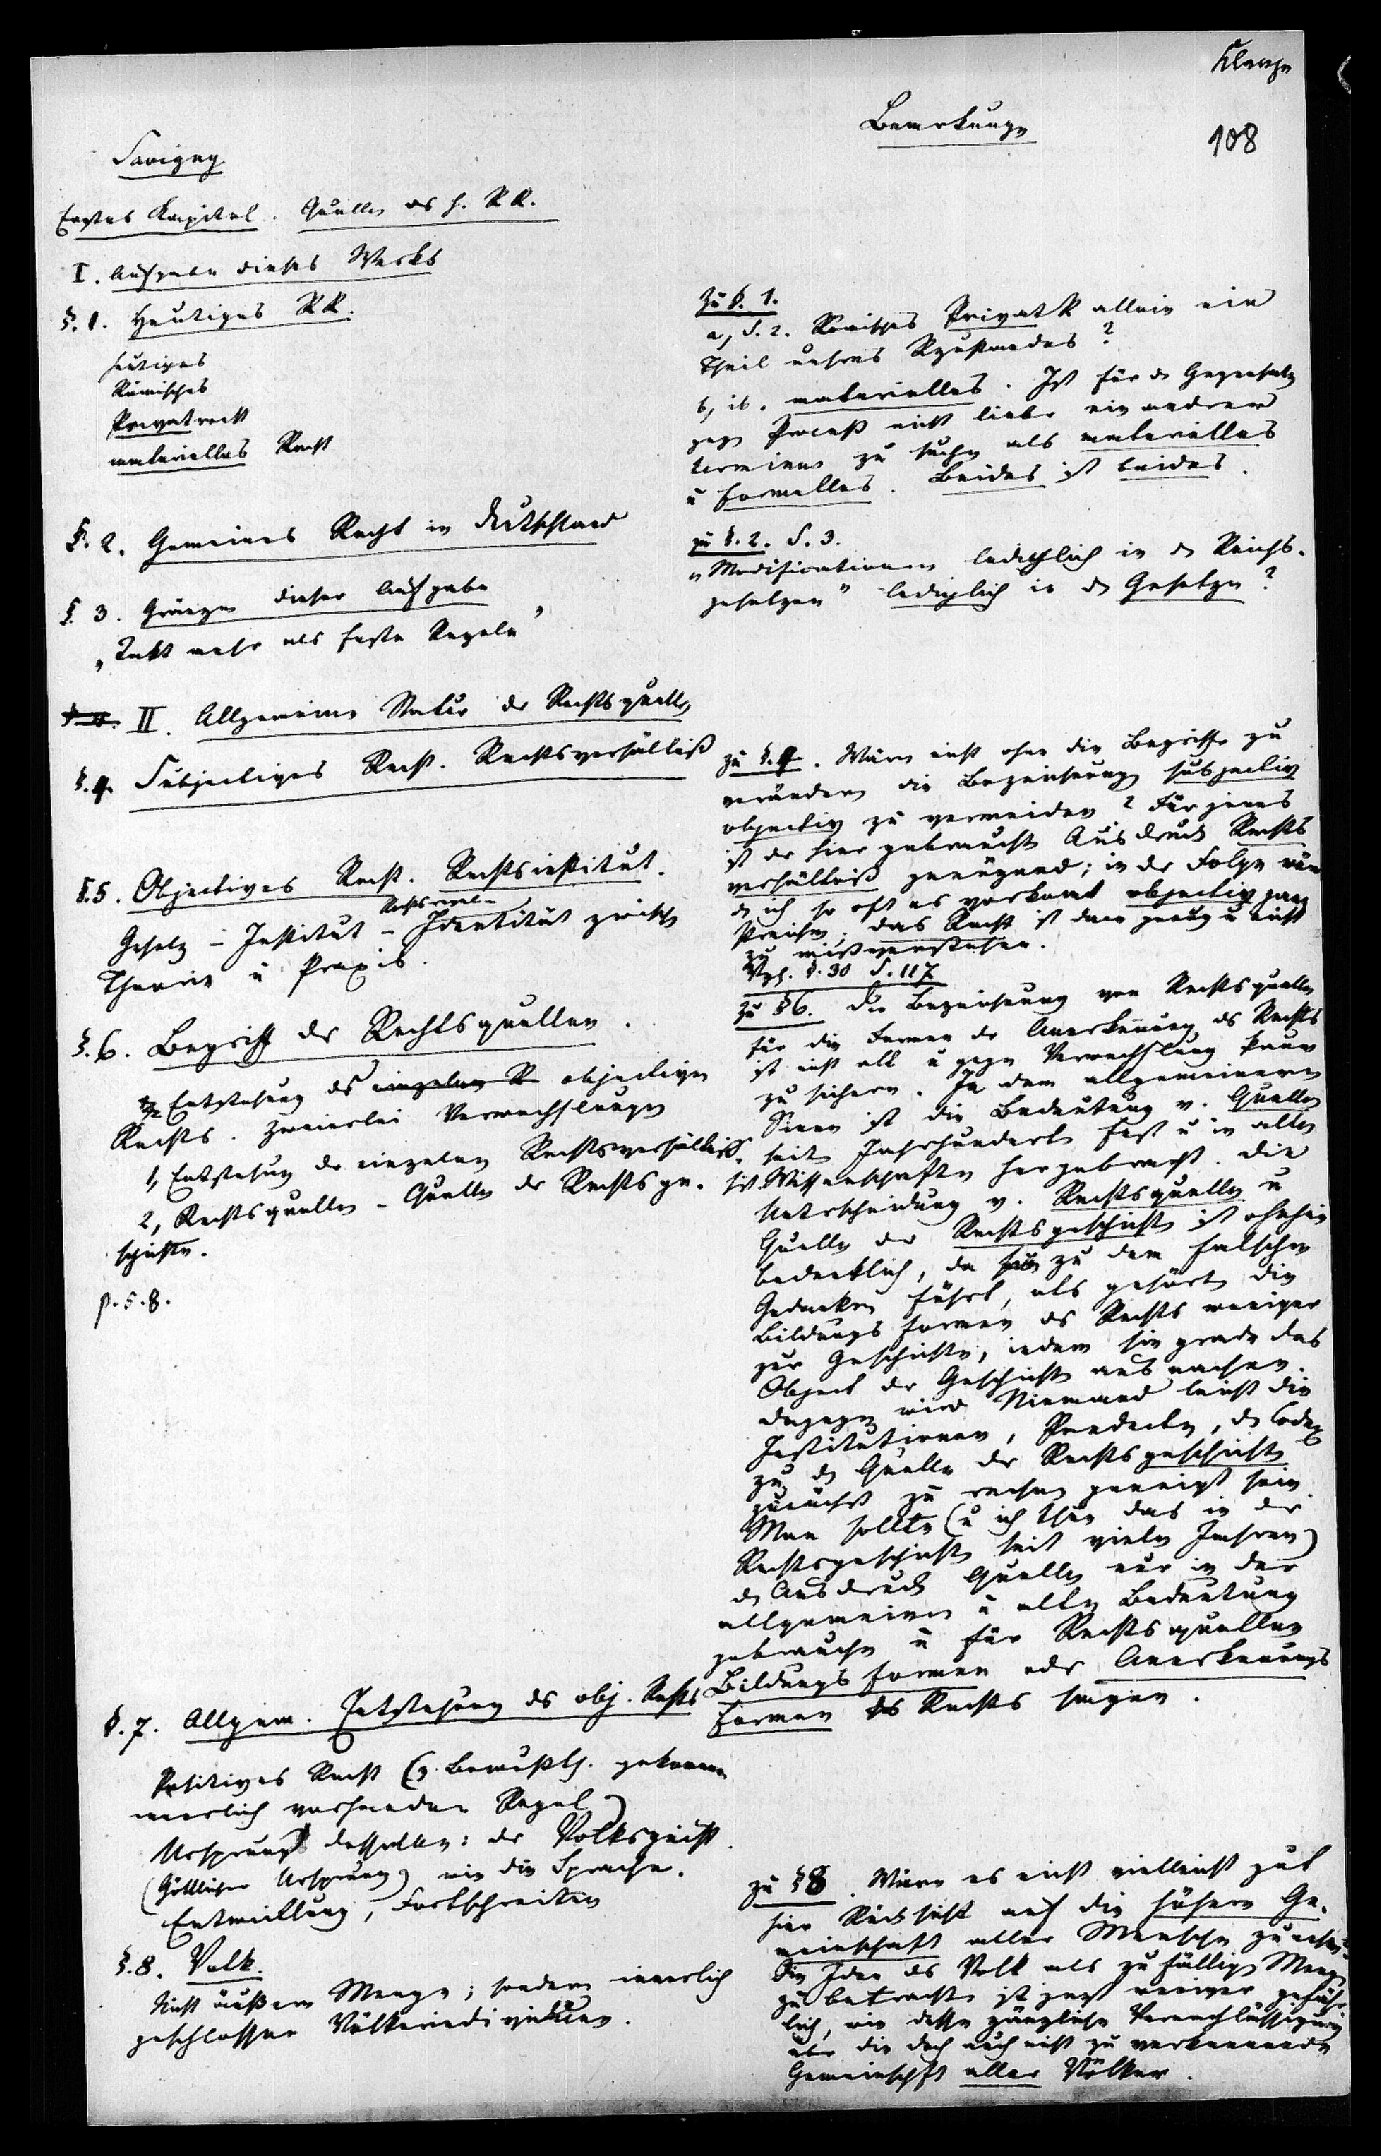 Klenze
Bemerkungen
108
Savigny
Erstes Kapitel. Quellen des h. RR.
I. Aufgabe dieses Werks
§. 1. Heutiges RR.
heutiges
Römisches
Privatrecht
materielles Recht
§. 2. Gemeines Recht in Deutschland
§ 3. Gränzen dieser Aufgabe
„Takt mehr als feste Regeln”
II. Allgemeine Natur der Rechtsquellen
§. 4. Subjectives Recht. Rechtsverhältniß
§. 5. Objectives Recht. Rechtsinstitut.
Rechtsregel
Gesetz – Institut – Identität zwischen
Theorie u Praxis.
§. 6. Begriff der Rechtsquellen.
Entstehung des einzelnen R objectiven
Rechts. Zweierlei Verwechslungen
1, Entstehung der einzelnen Rechtsverhältnisse
2, Rechtsquellen – Quellen der Rechtsge-
schichte.
p. 5. 8.
§. 7. Allgem. Entstehung des obj. Rechts
Positives Recht (z. Bewußts. gekomm
innerlich vorhandene Regel)
Ursprung desselben: der Volksgeist.
(Göttlicher Ursprung) wie die Sprache.
Entwicklung, Fortschreiten
§. 8. Volk.
Nicht äußere Menge; sondern innerlich
geschlossene Völkerindividuen.
zu §. 1.
a, S. 2. Römisches PrivatR allein ein
Theil unsres Rzustandes?
b, ib. materielles. Ist für den Gegensatz
gegen Proceß nicht lieber ein anderer
terminus zu suchen als materielles
u formelles. Beides ist beides.
zu §. 2. S. 3.
„Modificationen lediglich in den Reichs-
gesetzen” lediglich in den Gesetzen?
zu §. 4. Wäre nicht ohne die Begriffe zu
verändern die Bezeichnung subjectiv
objectiv zu vermeiden? Für jenes
ist der hier gebrauchte Ausdruck Rechts
verhältniß genügend; in der Folge würde
ich so oft es vorkommt objectiv ganz
streichen; das Recht ist dann genug u nicht
zu mißverstehen.
Vgl. §. 30 S. 117
zu § 6. Die Bezeichnung von Rechtsquellen
für die Formen der Anerkennung des Rechts
ist nicht alt u gegen Verwechslung kaum
zu sichern. In dem allgemeineren
Sinne ist die Bedeutung v. Quellen
seit Jahrhunderten fest u in allen
Wissenschaften hergebracht. Die
Unterscheidung v. Rechtsquellen u
Quellen der Rechtsgeschichte ist ohnehin
bedenklich, da sie zu dem falschen
Gedanken führt, als gehörten die
Bildungsformen des Rechts weniger
zur Geschichte, indem sie grade das
Object der Geschichte ausmachen.
dagegen wird Niemand leicht die
Institutionen, Pandecten, den Codex
zu den Quellen der Rechtsgeschichte
zunächst zu rechnen geneigt sein.
Man sollte (u ich thue das in der
Rechtsgeschichte seit vielen Jahren)
den Ausdruck Quellen nur in der
allgemeinen u alten Bedeutung
gebrauchen u für Rechtsquellen
Bildungsformen oder Anerkennungs
formen des Rechts sagen.
zu § 8. Wäre es nicht vielleicht gut
hier Rücksicht auf die höhere Ge-
meinschaft aller Menschen zu nehmen
Die Idee das Volk als zufällige Menge
zu betrachten ist jetzt weniger gefähr-
lich, wie dessen gänzliche Vernachlässigung
über die doch auch nicht zu verkennende
Gemeinschaft aller Völker.